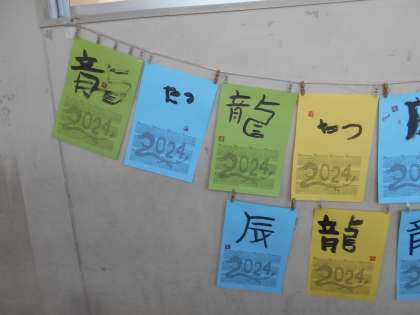 龍
2024
たつ
2024
龍
2024
たつ
2024
2024
辰
2024
龍
2024